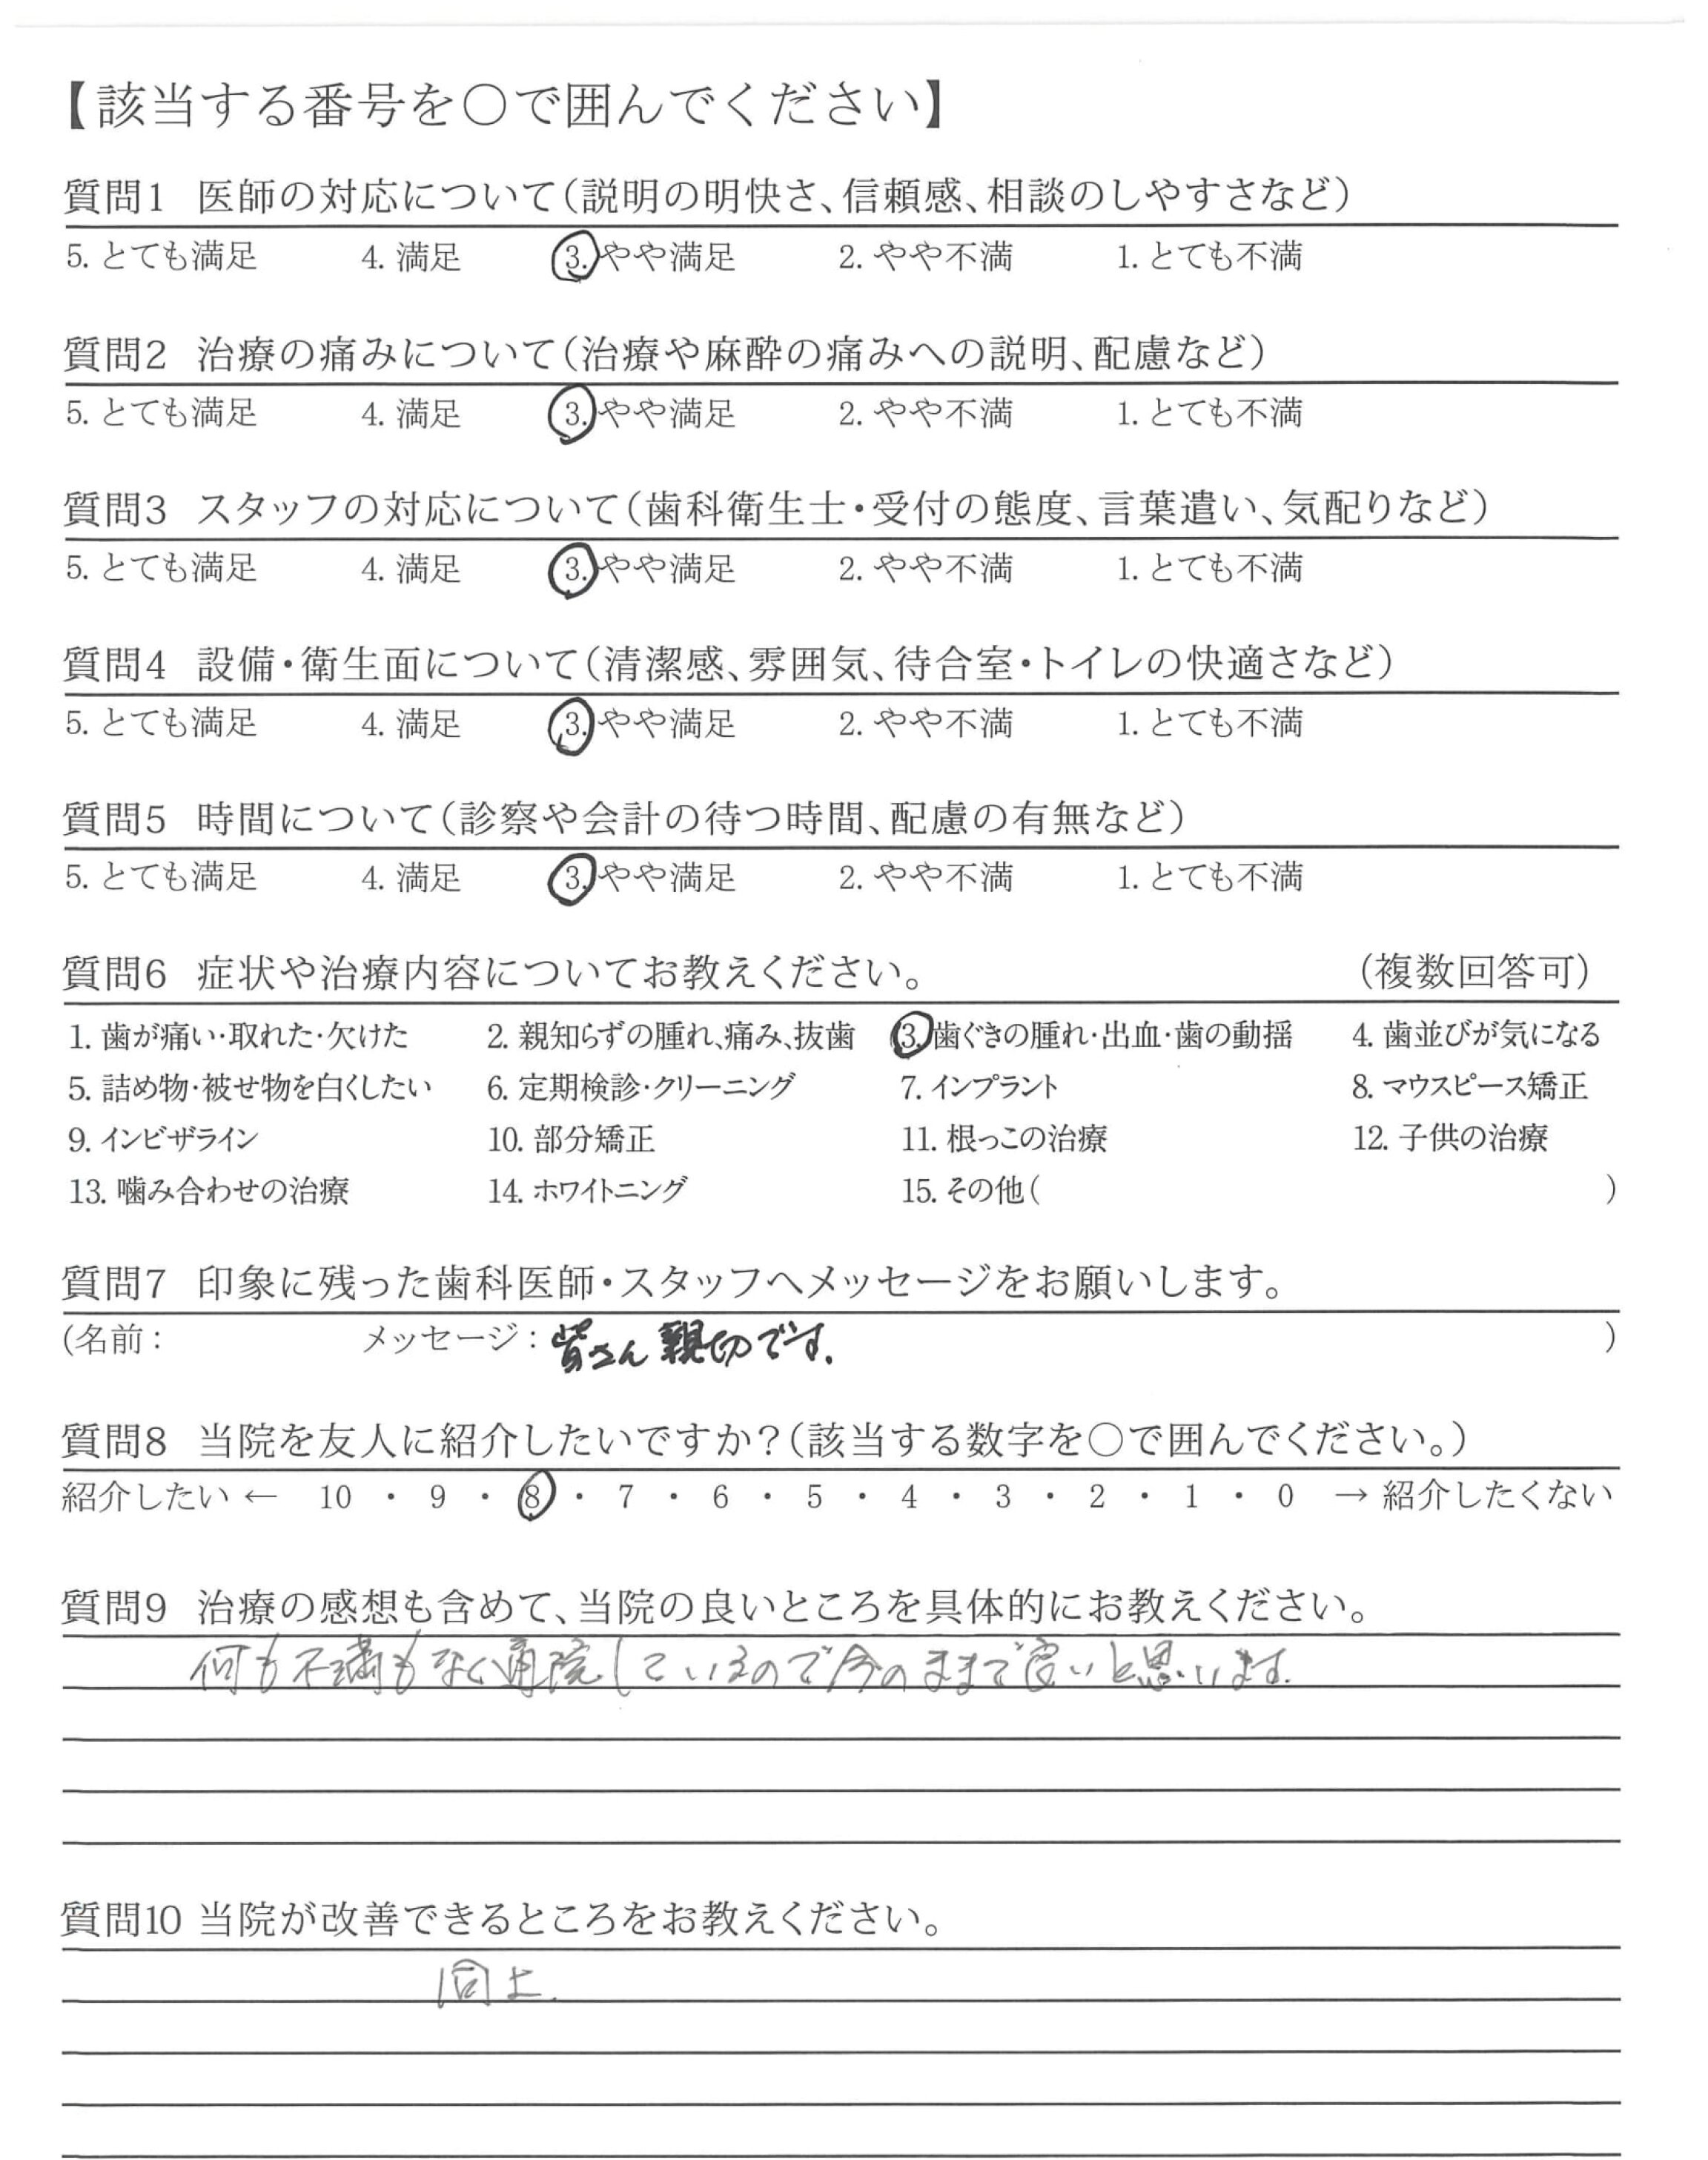 【該当する番号を○で囲んでください】
質問1 医師の対応について(説明の明快さ、信頼感、相談のしやすさなど)
5. とても満足 4. 満足 3. やや満足 2. やや不満 1. とても不満
質問2 治療の痛みについて(治療や麻酔の痛みへの説明、配慮など)
5. とても満足 4. 満足 3. やや満足 2. やや不満 1. とても不満
質問3 スタッフの対応について(歯科衛生士・受付の態度、言葉遣い、気配りなど)
5. とても満足 4. 満足 3. やや満足 2. やや不満 1. とても不満
質問4 設備・衛生面について(清潔感、雰囲気、待合室・トイレの快適さなど)
5. とても満足 4. 満足 3. やや満足 2. やや不満 1. とても不満
質問5 時間について(診察や会計の待つ時間、配慮の有無など)
5. とても満足 4. 満足 3. やや満足 2. やや不満 1. とても不満
質問6 症状や治療内容についてお教えください。 (複数回答可)
1. 歯が痛い・取れた・欠けた 2. 親知らずの腫れ、痛み、抜歯 3. 歯ぐきの腫れ・出血・歯の動揺 4. 歯並びが気になる
5. 詰め物・被せ物を白くしたい 6. 定期検診・クリーニング 7. インプラント 8. マウスピース矯正
9. インビザライン 10. 部分矯正 11. 根っこの治療 12. 子供の治療
13. 噛み合わせの治療 14. ホワイトニング 15. その他( )
質問7 印象に残った歯科医師・スタッフへメッセージをお願いします。
(名前: メッセージ: 皆さん親切です. )
質問8 当院を友人に紹介したいですか?(該当する数字を○で囲んでください。)
紹介したい ← 10 ・ 9 ・ 8 ・ 7 ・ 6 ・ 5 ・ 4 ・ 3 ・ 2 ・ 1 ・ 0 → 紹介したくない
質問9 治療の感想も含めて、当院の良いところを具体的にお教えください。
何も不満もなく通院しているので今のままで良いと思います.
質問10 当院が改善できるところをお教えください。
同上.